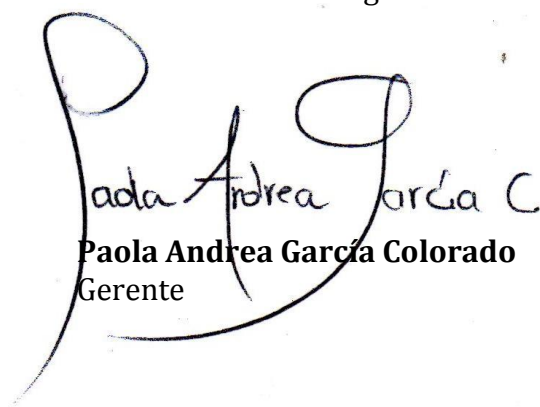 Paola Andrea García C
Paola Andrea García Colorado
Gerente